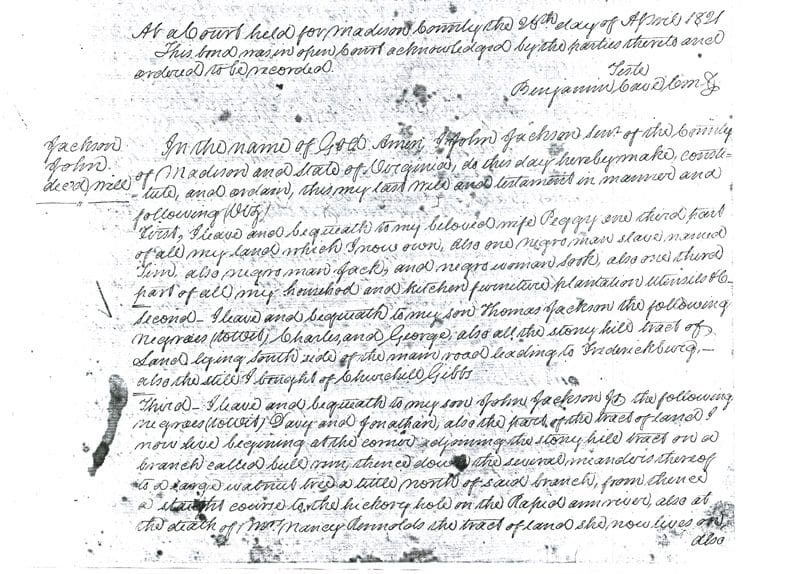 At a Court held for Madison County the 26th day of April 1821
This bond was in open Court acknowledged by the parties thereto and
ordered to be recorded.
Teste
Benjamin Cave
Jackson
John.
dec'd, will
In the name of God Amen I John Jackson senr of the County
of Madison and State of Virginia, do this day hereby make, consti-
tute, and ordain, this my last will and testament in manner and
following (Viz)
First, I leave and bequeath to my beloved wife Peggy one third part
of all my land which I now own, also one negro man slave, named
Tim also negro man Jack, and negro woman Sook, also one third
part of all my household and kitchen furniture plantation utensils &c-
Second - I leave and bequeath to my son Thomas Jackson the following
negroes (towit) Charles, and George, also all the stoney hill tract of
Land lying South side of the main road leading to Frederickburg,-
also the still I bought of Churchill Gibbs
Third - I leave and bequeath to my son John Jackson Jr the following
negroes (towit) Davy and Jonathan, also the part of the tract of land I
now live begining at the corner adjoining the stoney hill tract on a
branch called bull run, thence down the several meanders thereof
to a large walnut tree a little north of said branch, from thence
a straight course to the hickory hole on the Rapid ann river, also at
the death of Mrs Nancy Runnolds the tract of land she, now lives on,
also